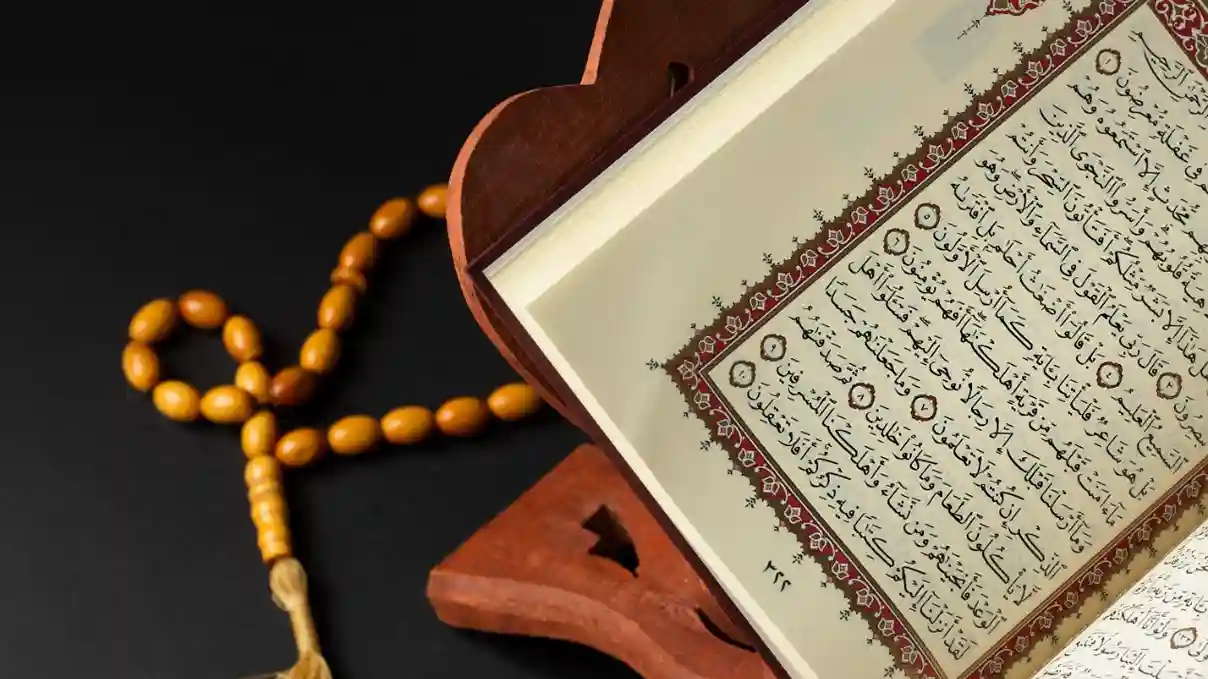 ٱلرَّحْمَٰنِ ٱلرَّحِيمِ
فِى غَفْلَةٍ مُّعْرِضُونَ ١
مُّحْدَثٍ إِلَّا ٱسْتَمَعُوهُ وَهُمْ
لَاهِيَةً قُلُوبُهُمْ وَأَسَرُّوا۟ ٱلنَّجْوَى ٱلَّذِينَ
هَلْ هَٰذَآ إِلَّا بَشَرٌ مِّثْلُكُمْ أَفَتَأْتُونَ ٱلسِّحْرَ وَأَنتُمْ
تُبْصِرُونَ ٣ قَالَ رَبِّى يَعْلَمُ ٱلْقَوْلَ فِى ٱلسَّمَآءِ وَٱلْأَرْضِ وَهُوَ
ٱلسَّمِيعُ ٱلْعَلِيمُ ٤ بَلْ قَالُوٓا۟ أَضْغَٰثُ أَحْلَٰمٍ بَلِ ٱفْتَرَىٰهُ
بَلْ هُوَ شَاعِرٌ فَلْيَأْتِنَا بِـَٔايَةٍ كَمَآ أُرْسِلَ ٱلْأَوَّلُونَ ٥
مَآ ءَامَنَتْ قَبْلَهُم مِّن قَرْيَةٍ أَهْلَكْنَٰهَآ أَفَهُمْ يُؤْمِنُونَ ٦
وَمَآ أَرْسَلْنَا قَبْلَكَ إِلَّا رِجَالًا نُّوحِىٓ إِلَيْهِمْ فَسْـَٔلُوٓا۟ أَهْلَ
ٱلذِّكْرِ إِن كُنتُمْ لَا تَعْلَمُونَ ٧ وَمَا جَعَلْنَٰهُمْ جَسَدًا
لَّا يَأْكُلُونَ ٱلطَّعَامَ وَمَا كَانُوا۟ خَٰلِدِينَ ٨ ثُمَّ صَدَقْنَٰهُمُ
ٱلْوَعْدَ فَأَنجَيْنَٰهُمْ وَمَن نَّشَآءُ وَأَهْلَكْنَا ٱلْمُسْرِفِينَ ٩
لَقَدْ أَنزَلْنَآ إِلَيْكُمْ كِتَٰبًا فِيهِ ذِكْرُكُمْ أَفَلَا تَعْقِلُونَ ١٠
٣٢٢